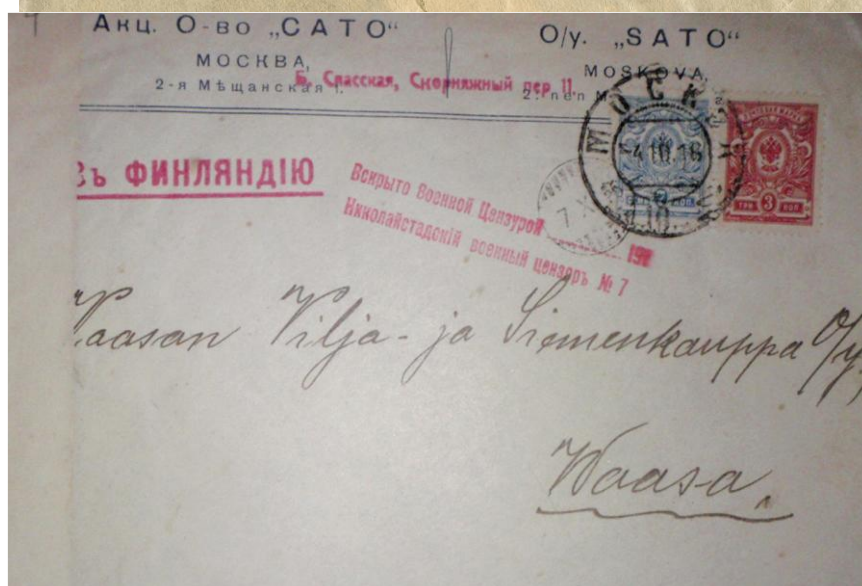 Акц. О-во „САТО“
О/у. „SATO“
МОСКВА,
MOSKOVA,
2-я Мѣщанская
Б. Спасская, Скорняжный пер 11.
МОСКВА
4 10.16
7
3
Въ ФИНЛЯНДІЮ
Вскрыто Военной Цензурой 191
Николайстадскій военный цензоръ № 7
Vaasan Vilja- ja Siemenkauppa O/y.
Waasa.